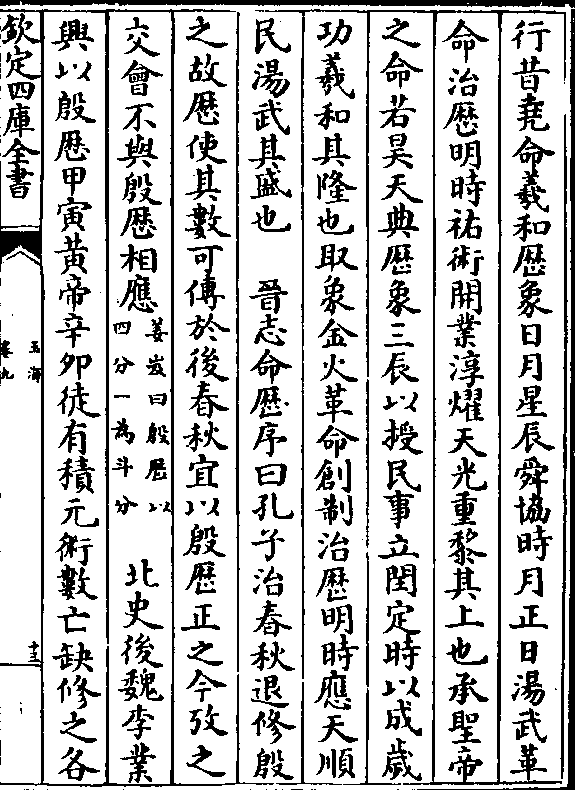 行昔堯命羲和歴象日月星辰舜協時月正日湯武革
命治歴明時祐術開業淳燿天光重黎其上也承聖帝
之命若昊天典歴象三辰以授民事立閏定時以成歲
功羲和其隆也取象金火革命創制治歴明時應天順
民湯武其盛也　晉志命歴序曰孔子治春秋退修殷
之故歴使其數可傳於後春秋宜以殷歴正之今攷之
交會不與殷歴相應
姜岌曰殷歴以
四分一為斗分
北史後魏李業
興以殷歴甲寅黄帝辛卯徒有積元術數亡缺修之各
欽定四庫全書
玉海
卷九
十三